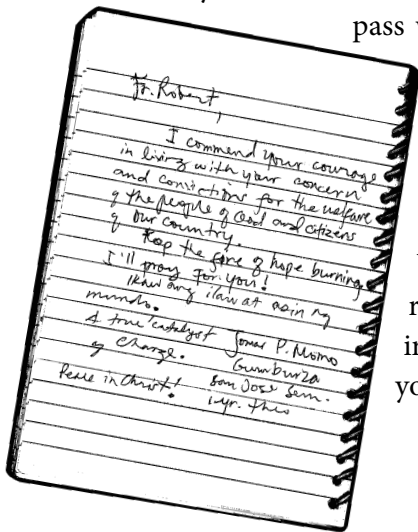 pass
Fr. Robert,
I commend your courage
in living with your concern
and convictions for the welfare
of the people of God and citizens
of our country.
Keep the fire of hope burning
I'll pray for you!
Ikaw ang ilaw at asin ng
mundo.
A true catalyst
of Change.
Peace in Christ!
Jomar P. Momo
Gumburza
San Jose Sem.
1 yr. theo
r
in
yo